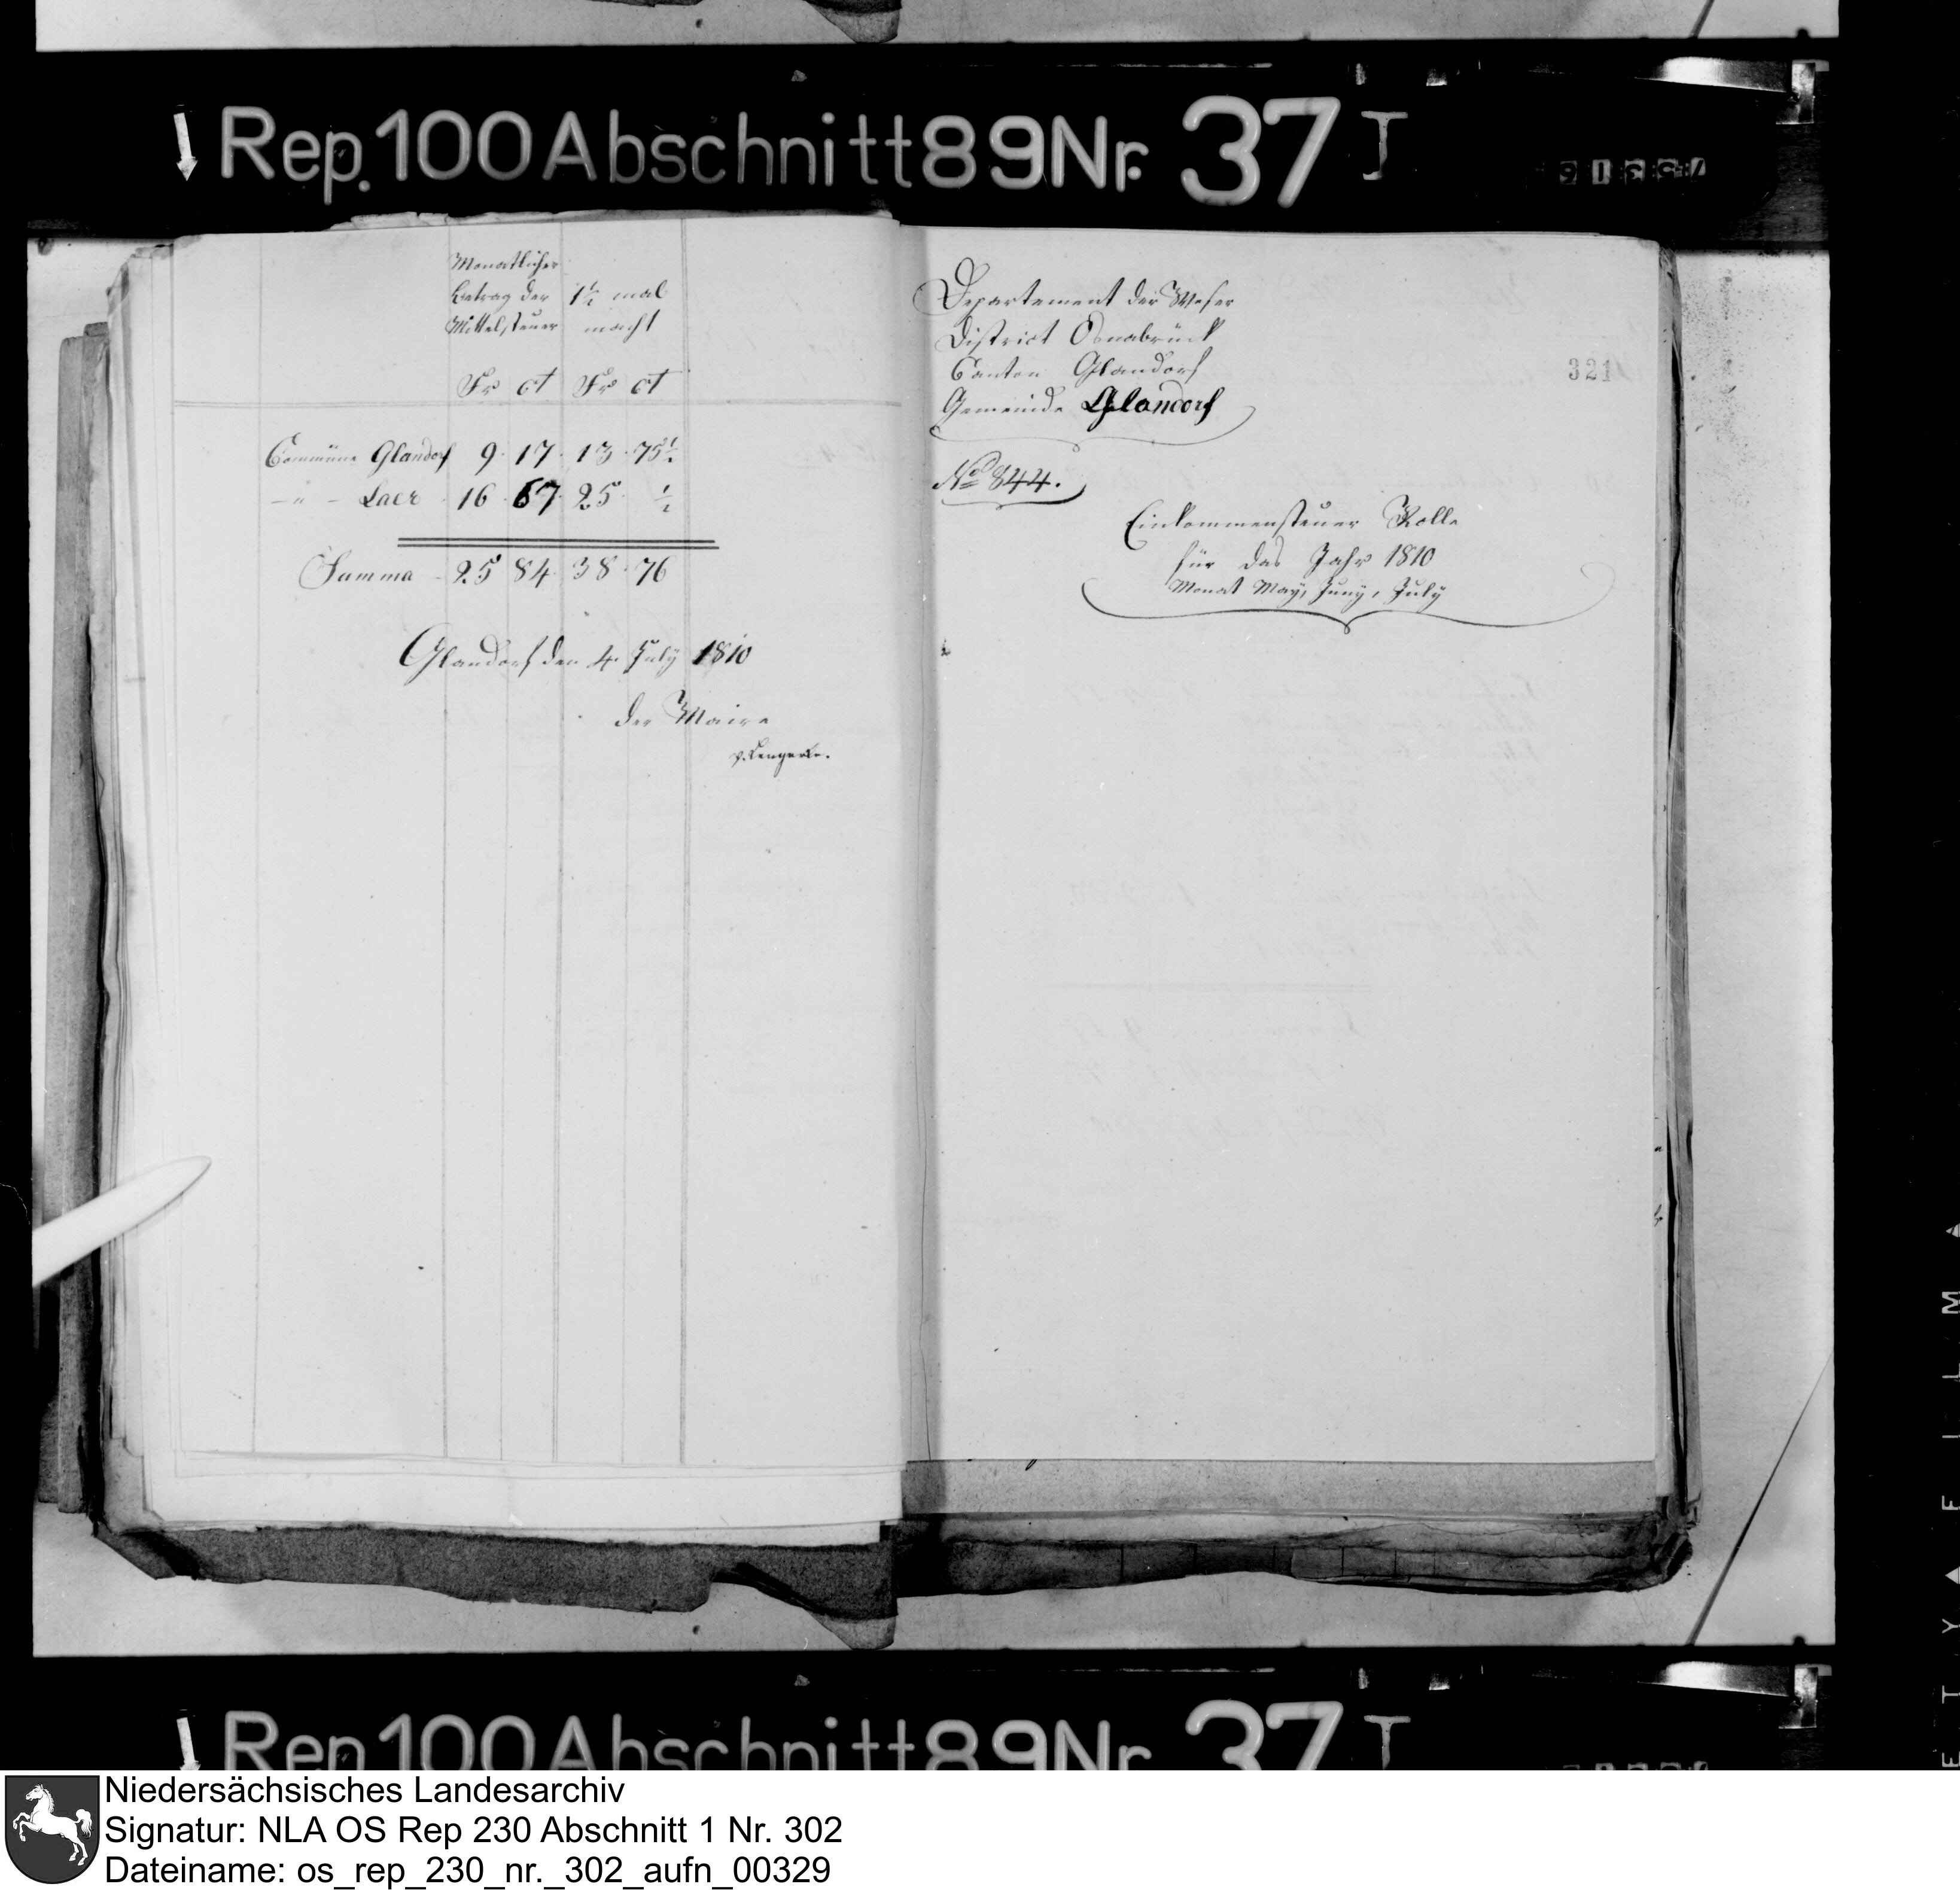 Rep. 100 Abschnitt 89 Nr. 37 I
Monatlicher
Betrag der 1 1/2 mal
Mittelsteuer macht
Fr ct Fr ct
Commüne Glandorf 9 17 13 75 1/2
—"— Laer 16 67 25 1/2
Summa 25 84 38 76
Glandorf den 4 July 1810
der Maire
v. Lengerke.
Departement der Weser
District Osnabrück
Canton Glandorf
Gemeinde Glandorf
321
No 844.
Einkommensteuer Rolle
für das Jahr 1810
Monat May, Juny, July
Rep. 100 Abschnitt 89 Nr. 37 I
Niedersächsisches Landesarchiv
Signatur: NLA OS Rep 230 Abschnitt 1 Nr. 302
Dateiname: os_rep_230_nr._302_aufn_00329